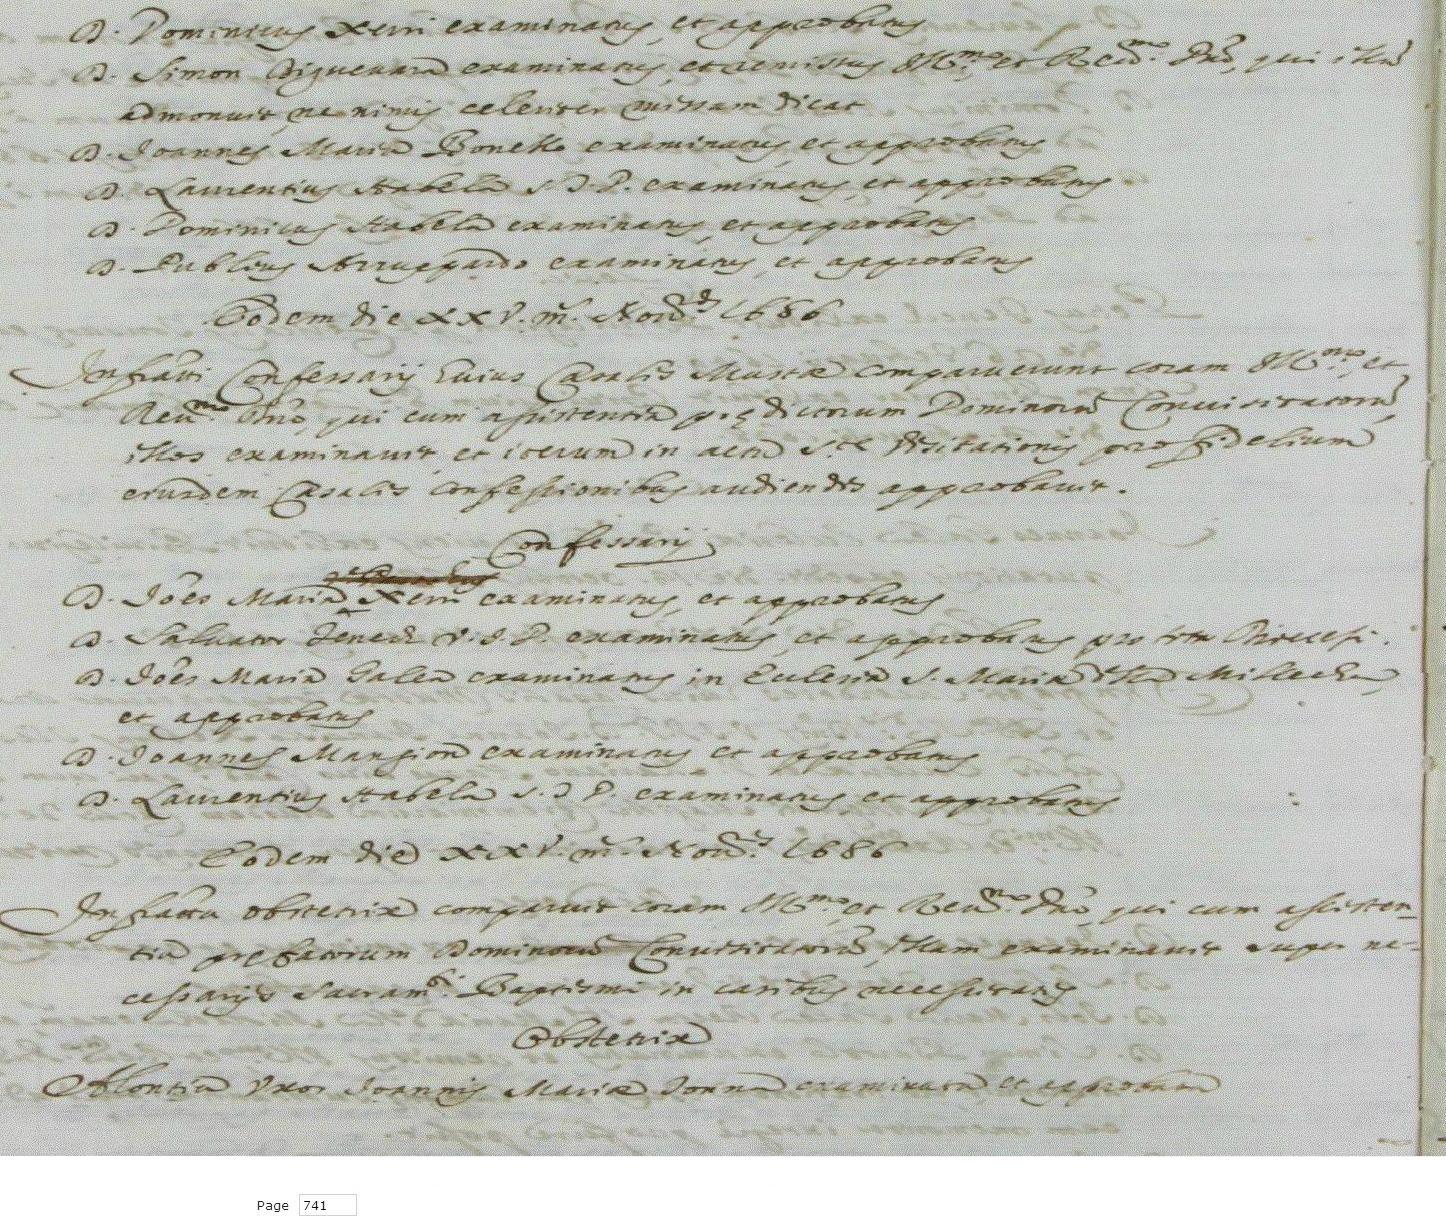 D. Dominicus Xerri examinatus, et approbatus
D. Simon Biguenara examinatus, et remissus Ill.mo et Reu.mo Dño, qui illũ
admonuit, ne nimis celeriter missam dicat
D. Joannes Maria Bonello examinatus, et approbatus
D. Laurentius Habela S.J.P. examinatus, et approbatus
D. Dominicus Habela examinatus, et approbatus
D. Publius examinatus, et approbatus
Eodem die XXV. m. Nou. 1686
Infrãtti Confessarij huius Casalis Mustæ comparuerunt coram Ill.mo, et
Reu.mo Dño, qui cum assistentia prædictorum Dominorũ Conuisitatorũ,
illos examinauit, et iterum in actu S.æ Visitationis pro fidelium
eiusdem Casalis confessionibus audiendis approbauit.
Confessarij
D. Joẽs Maria Xerri examinatus, et approbatus
D. Saluator V.J.D. examinatus, et approbatus pro tota Diocesi.
D. Joẽs Maria Galea examinatus in Ecclesia S. Mariæ,
et approbatus
D. Joannes Mangion examinatus et approbatus
D. Laurentius Habela S.J.P. examinatus et approbatus
Eodem die XXV. m. Nou. 1686
Infrãtta obstetrix comparuit coram Ill.mo, et Reu.mo Dño, qui cum assisten-
tia præfatorum Dominorũ Conuisitatorũ, illam examinauit super ne-
cessarijs Sacram.ti Baptismi in casibus necessitatis
Obstetrix
Uxor Joannis Mariæ examinata, et approbata
Page 741